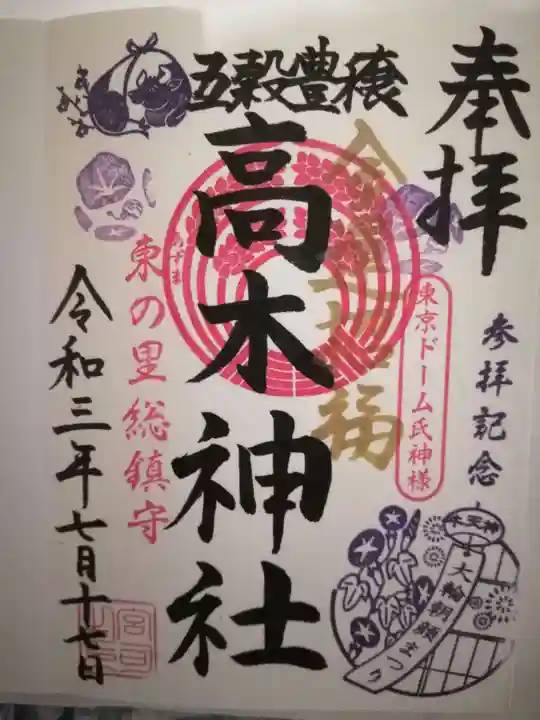 奉拝
参拝記念
東京ドーム氏神様
牛天神
大輪朝顔まつり
五穀豊穣
高木神社
あずま
東の里総鎮守
令和三年七月十七日